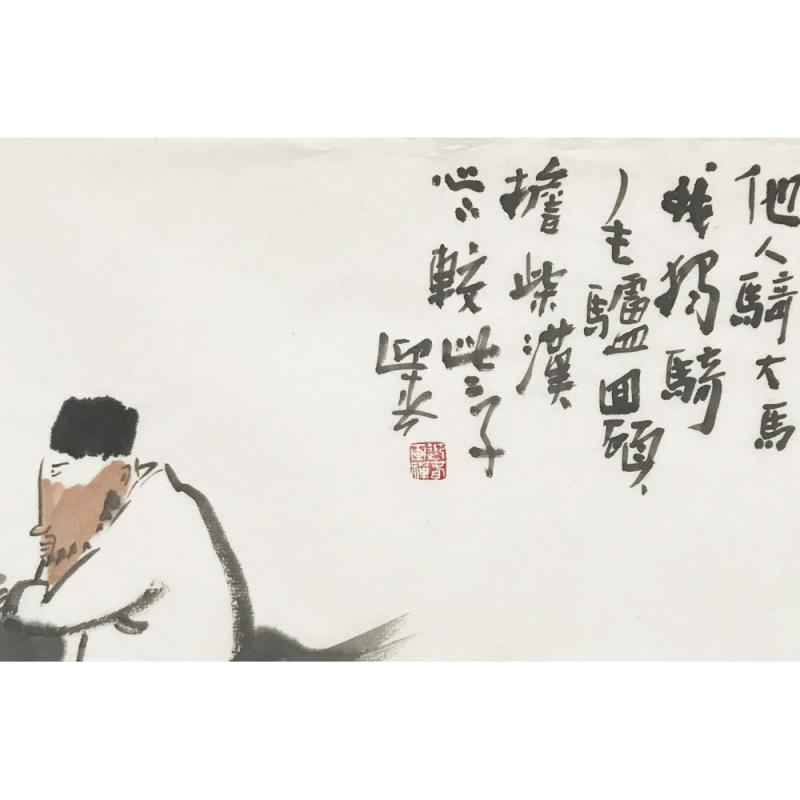 他人騎大馬
我獨騎
毛驢回頭
擔柴漢
心下較些子
迎春